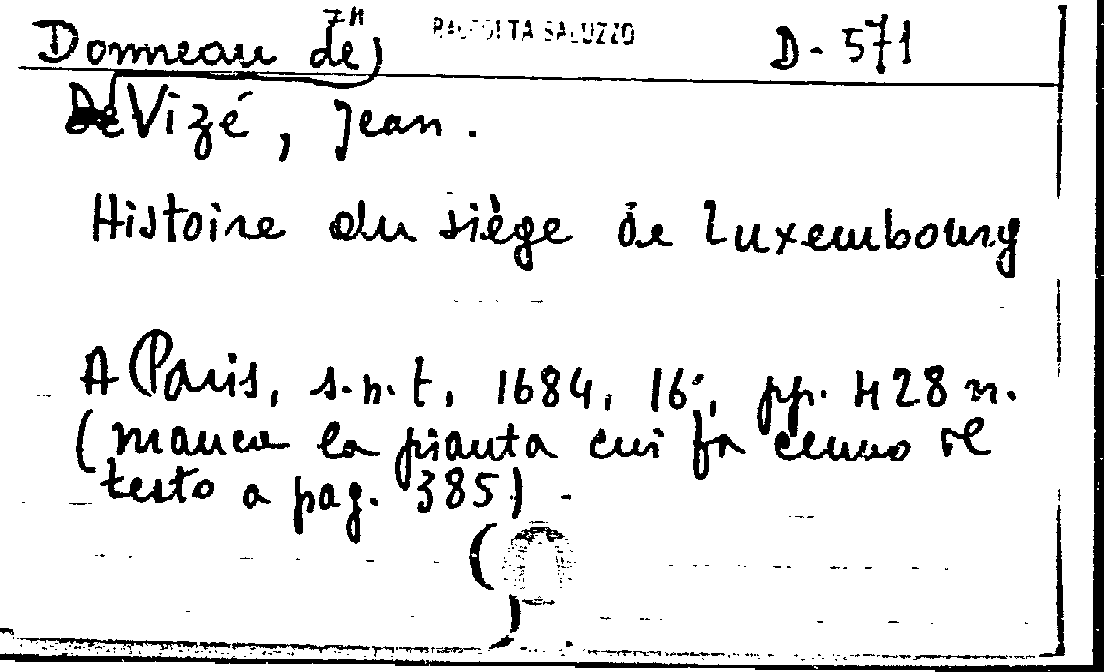 7n
RACCOLTA SALUZZO
Donneau de D-571
De Vizé, Jean.
Histoire du siège de Luxembourg
A Paris, s.n.t, 1684, 16°, pp. 428 n.
(manca la pianta cui fa cenno il
testo a pag. 385)